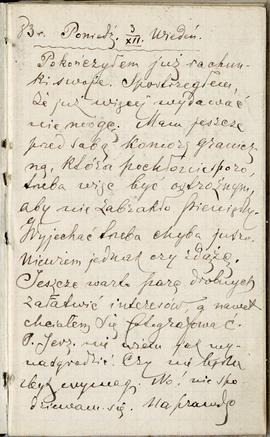 83 r. Poniedz. 3/XII. Wiedeń.
Pokończyłem już rachun-
ki swoje. Spostrzegłem,
że już więcej wydawać
nie mogę. Mam jeszcze
przed sobą komorę granicz-
ną, która pochłonie sporo,
trzeba więc być ostrożnym,
aby nie zabrakło pieniędzy.
Wyjechać trzeba chyba jutro.
Niewiem jednak czy zdążę.
Jeszcze warto parę drobnych
załatwić interesów, a nawet
chciałem się fotografować.
P. Jerz. nie wiem jak wy-
nagrodzić. Czy nie będzie
zbyt wymag. No, nie spo-
dziewam się. Naprawdę